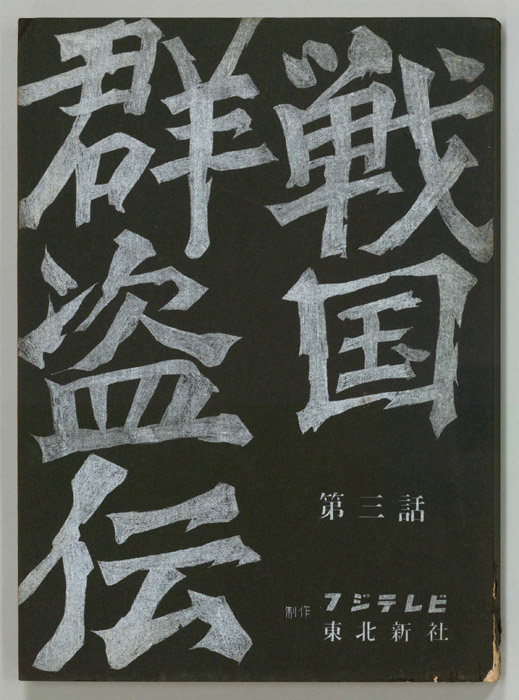 戦国
群盗伝
第三話
制作 フジテレビ
東北新社